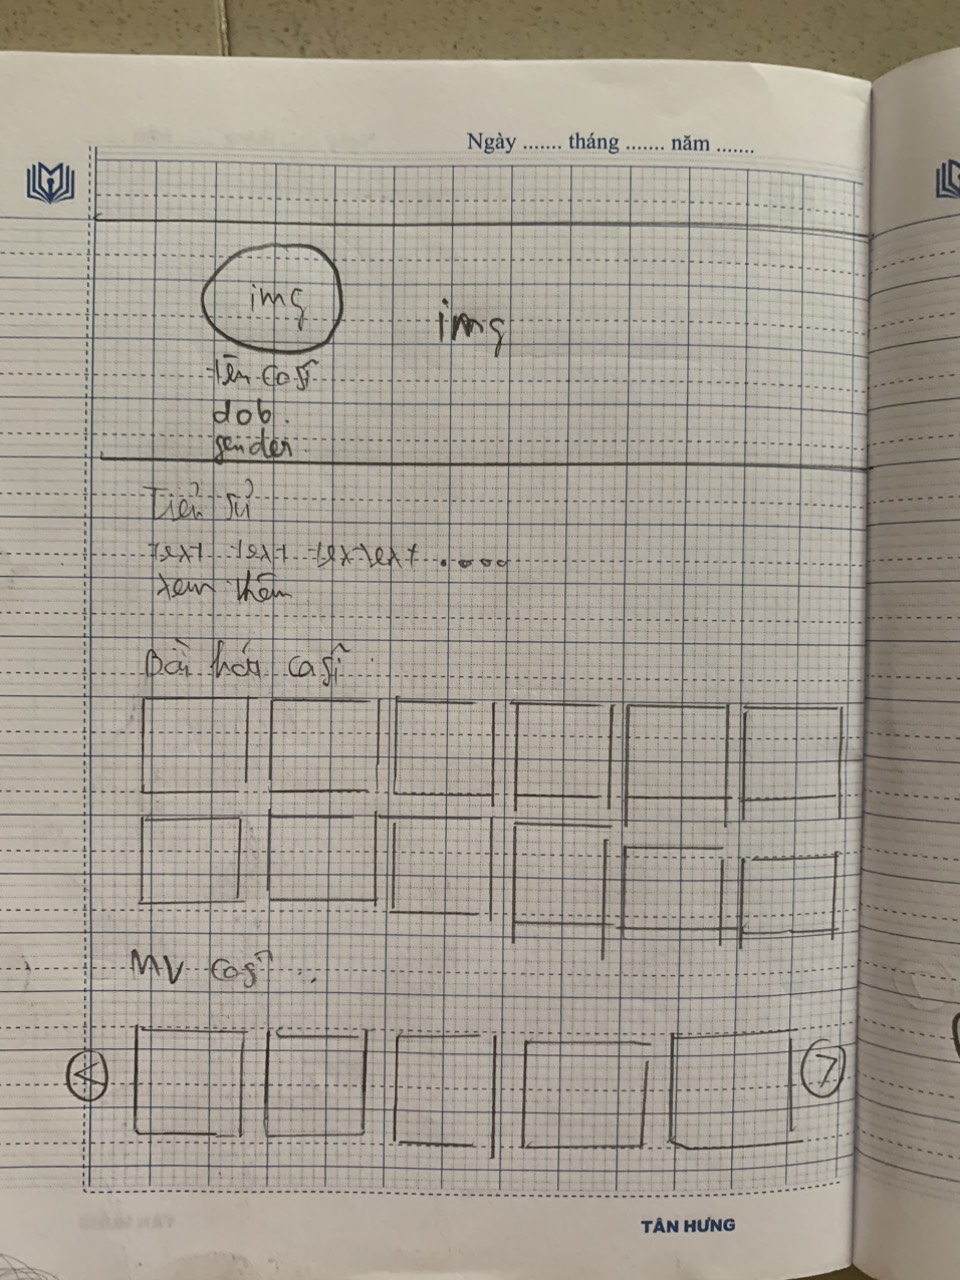 Ngày ....... tháng ....... năm .......
img
img
tên ca sĩ
dob.
gender
Tiểu sử
text text textext .....
xem thêm
Bài hát ca sĩ
MV ca sĩ
<
>
TÂN HƯNG